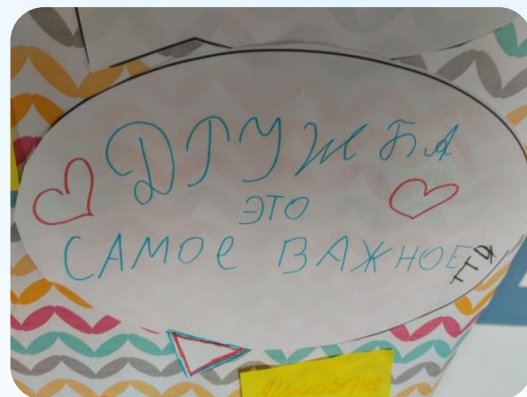 ДРУЖБА
ЭТО
САМОЕ ВАЖНОЕ